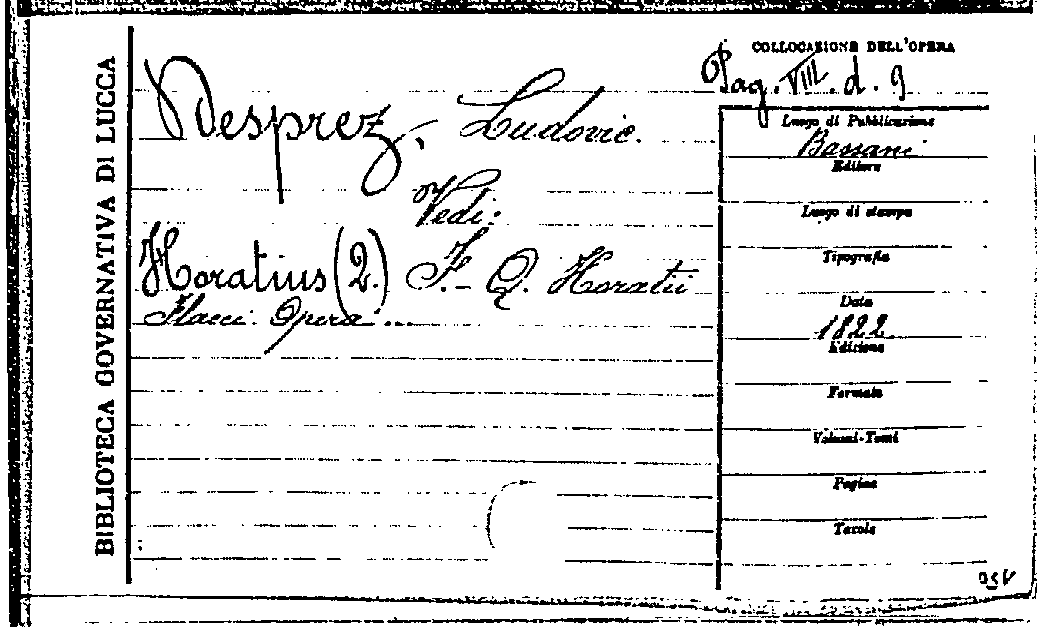 BIBLIOTECA GOVERNATIVA DI LUCCA
Desprez, Ludovic.
Vedi:
Horatius (2.) F. - Q. Horatii
Flacci Opera ...
COLLOCAZIONE DELL'OPERA
Pag. VIII. d. 9
Luogo di Pubblicazione
Bassani
Editore
Luogo di stampa
Tipografia
Data
1822
Edizione
Formato
Volumi-Tomi
Pagine
Tavole